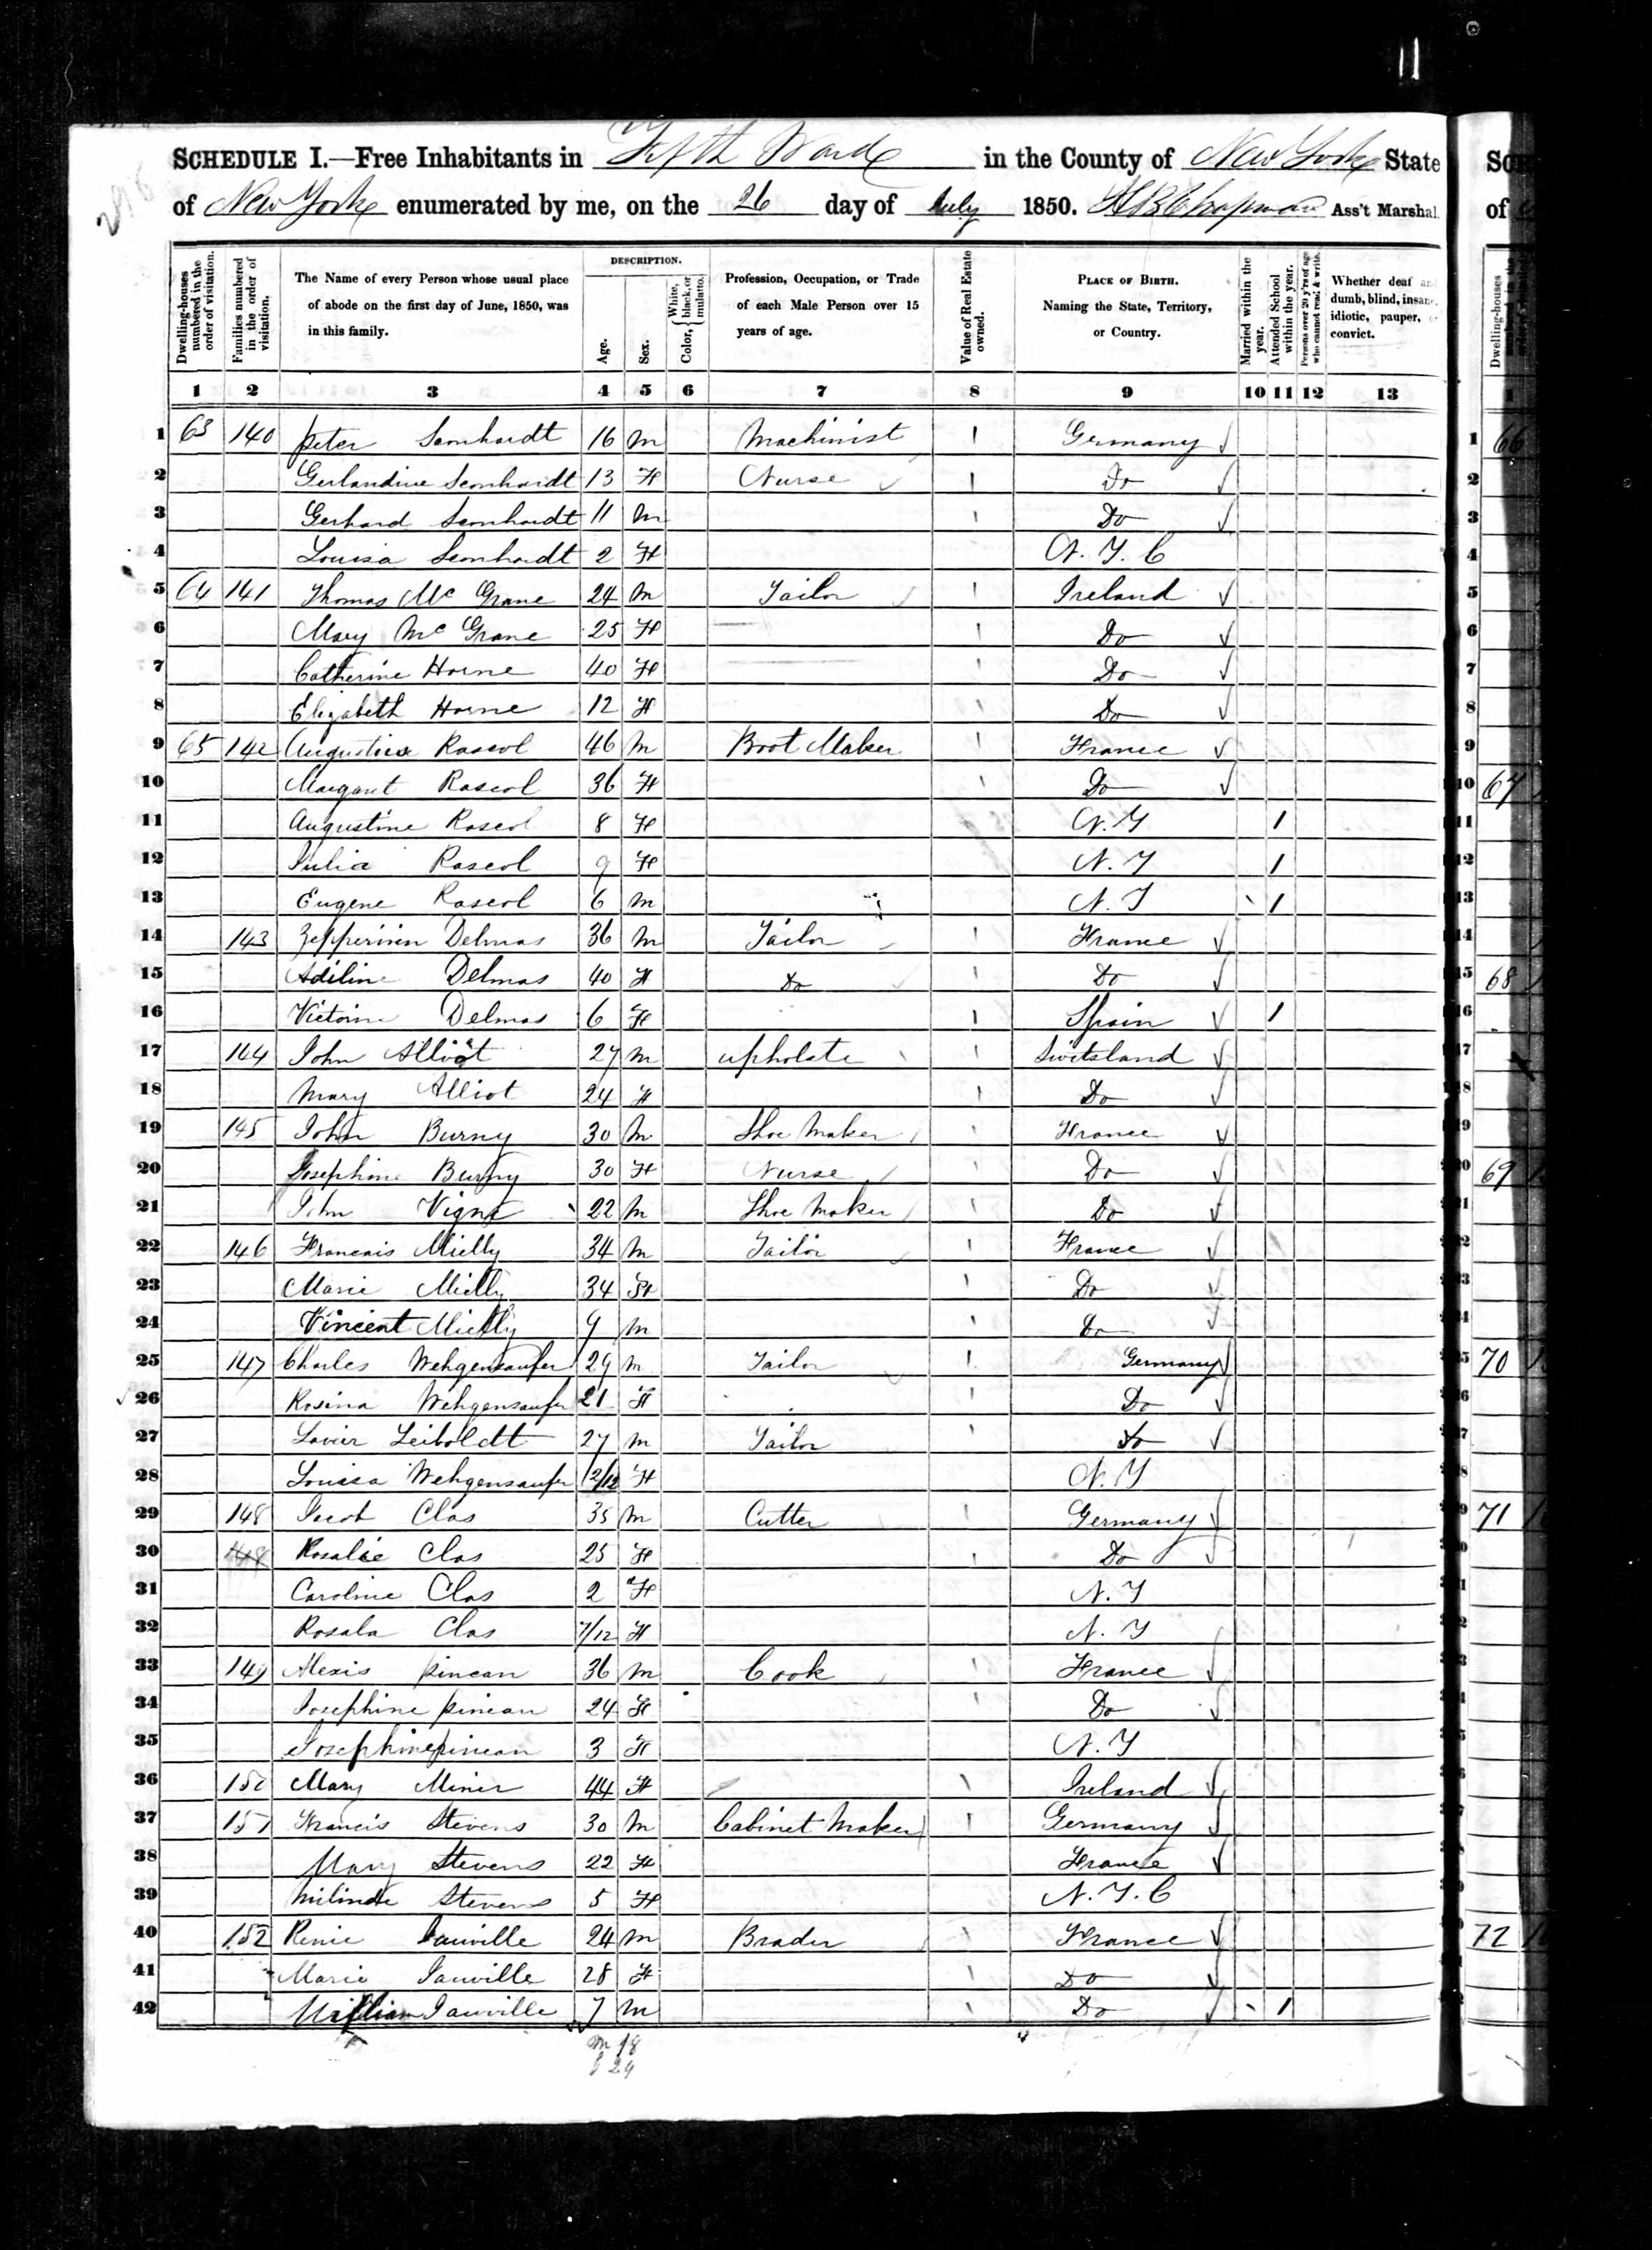 11
296
SCHEDULE I.—Free Inhabitants in Fifth Ward in the County of New York State
of New York enumerated by me, on the 26 day of July 1850. H B Chapman Ass't Marshal.
Dwelling-houses numbered in the order of visitation.
Families numbered in the order of visitation.
The Name of every Person whose usual place of abode on the first day of June, 1850, was in this family.
DESCRIPTION.
Age.
Sex.
Color, { White, black, or mulatto.
Profession, Occupation, or Trade of each Male Person over 15 years of age.
Value of Real Estate owned.
PLACE OF BIRTH. Naming the State, Territory, or Country.
Married within the year.
Attended School within the year.
Persons over 20 y'rs of age who cannot read & write.
Whether deaf and dumb, blind, insane, idiotic, pauper, or convict.
1 2 3 4 5 6 7 8 9 10 11 12 13
1 63 140 Peter Leonhardt 16 M Machinist Germany
2 Gerlandine Leonhardt 13 F Nurse Do
3 Gerhard Leonhardt 11 M Do
4 Louisa Leonhardt 2 F N. Y. C
5 64 141 Thomas Mc Grane 24 M Tailor Ireland
6 Mary Mc Grane 25 F Do
7 Catherine Horne 40 F Do
8 Elizabeth Horne 12 F Do
9 65 142 Augustine Rascol 46 M Boot Maker France
10 Margaret Rascol 36 F Do
11 Augustine Rascol 8 F N. Y 1
12 Julia Rascol 9 F N. Y 1
13 Eugene Rascol 6 M N. Y 1
14 143 Zepperinien Delmas 36 M Tailor France
15 Adiline Delmas 40 F Do Do
16 Victoine Delmas 6 F Spain 1
17 144 John Alliot 27 M upholste Switsland
18 Mary Alliot 24 F Do
19 145 John Burny 30 M Shoe Maker France
20 Josephine Burny 30 F Nurse Do
21 John Vigne 22 M Shoe Maker Do
22 146 Francais Mielly 34 M Tailor France
23 Marie Mielly 34 F Do
24 Vincent Mielly 9 M Do
25 147 Charles Wehgensaufer 29 M Tailor Germany
26 Rosina Wehgensaufer 21 F Do
27 Leiboldt 27 M Tailor Do
28 Louisa Wehgensaufer 2/12 F N. Y
29 148 Jacob Clas 35 M Cutter Germany
30 148 Rosalie Clas 25 F Do
31 Caroline Clas 2 F N. Y
32 Rosala Clas 7/12 F N. Y
33 149 Alexis pinean 36 M Cook France
34 Josephine pinean 24 F Do
35 Josephine pinean 3 F N. Y
36 150 Mary Miner 44 F Ireland
37 151 Francis Stevens 30 M Cabinet Maker Germany
38 Mary Stevens 22 F France
39 Milinde Stevens 5 F N. Y. C
40 152 Renie Janville 24 M Brader France
41 Marie Janville 28 F Do
42 William Janville 7 M Do 1
m 18
f 24
66
67
68
69
70
71
72